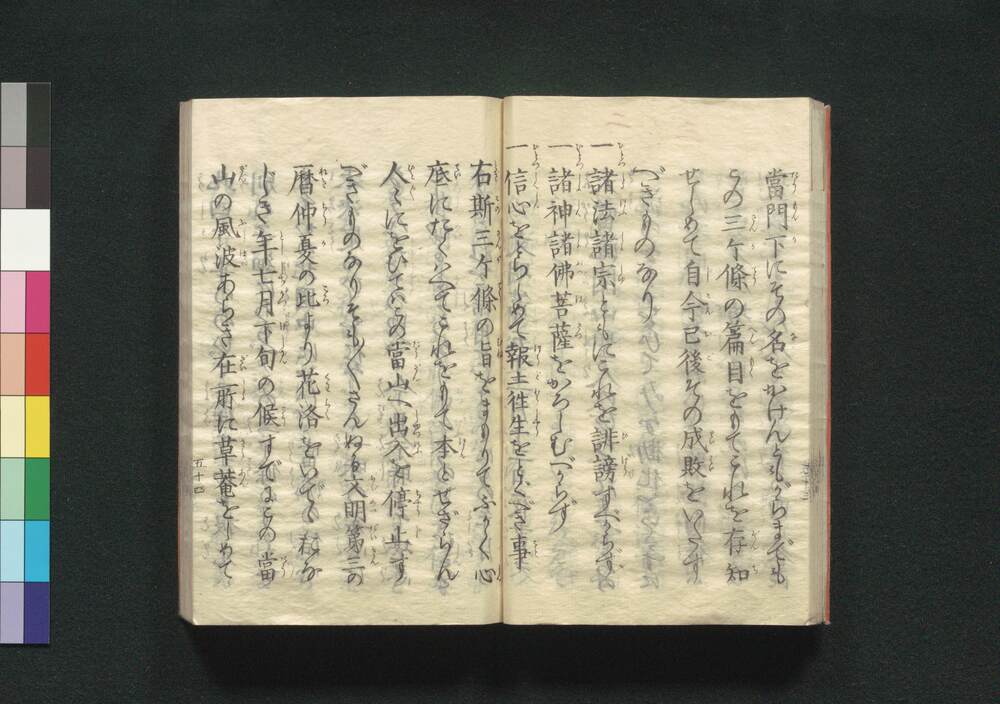 當門下にその名をかけんともがらまでも
この三ケ條の篇目をもてこれを存知
せしめて自今已後その成敗をいたす
べきものなり
一諸法諸宗ともにこれを誹謗すべからず
一諸神諸佛菩薩をかろしむべからず
一信心をとらしめて報土往生をとぐべき事
右斯三ケ條の旨をまもりてふかく心
底にたくはへてこれをもて本とせざらん
人〻にをひてはこの當山へ出入を停止す
べきものなりそも〱さんぬる文明第三の
暦仲夏の比より花洛をいでゝ
じき年七月下旬の候すでにこの當
山の風波あらき在所に草菴をしめて
五十三
五十四